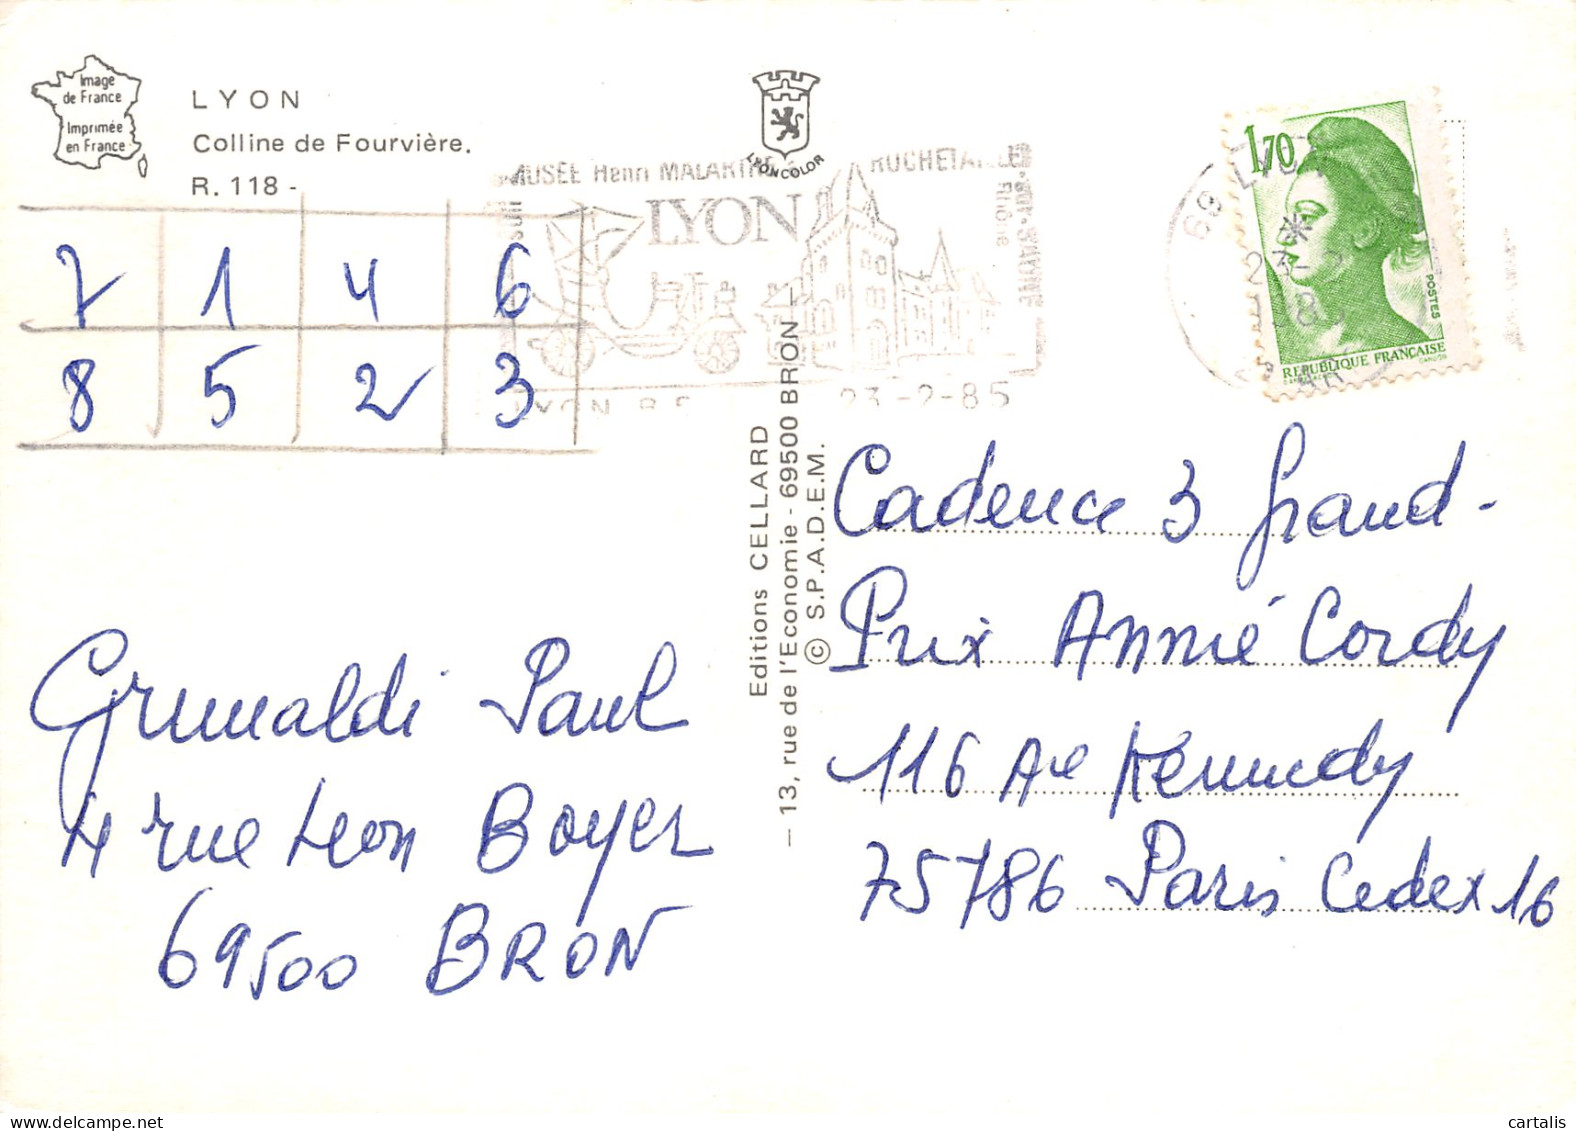 Image
de France
Imprimée
en France
LYON
Colline de Fourvière.
R. 118 -
LYONCOLOR
MUSÉE Henri MALARTRE
ROCHETAILLÉE
sur-SAÔNE
Rhône
LYON
LYON R.P.
23-2-85
69 LYON
23-2
1,70
POSTES
REPUBLIQUE FRANÇAISE
7 1 4 6
8 5 2 3
Editions CELLARD
– 13, rue de l'Economie - 69500 BRON –
© S.P.A.D.E.M.
Cadence 3 Grand-
Prix Annie Cordy
116 Ave Kennedy
75786 Paris Cedex 16
Grimaldi Paul
4 rue Léon Boyer
69500 BRON
cartalis